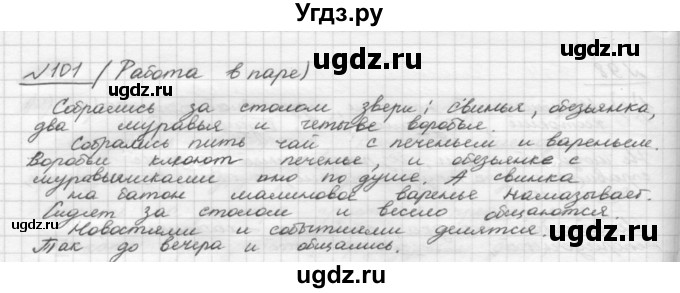 Угдз.ру
№101 (Работа в паре)
ugdz.ru ugdz.ru
Собрались за столом звери: свинья, обезьянка,
два муравья и четыре воробья.
ugdz.ru ugdz.ru
Собрались пить чай с печеньем и вареньем.
Воробьи клюют печенье, и обезьянке с
муравьишками оно по душе. А свинка
на батон малиновое варенье намазывает.
ugdz.ru ugdz.ru
Сидят за столом и весело общаются.
Новостями и событиями делятся.
Так до вечера и общались.
ugdz.ru ugdz.ru